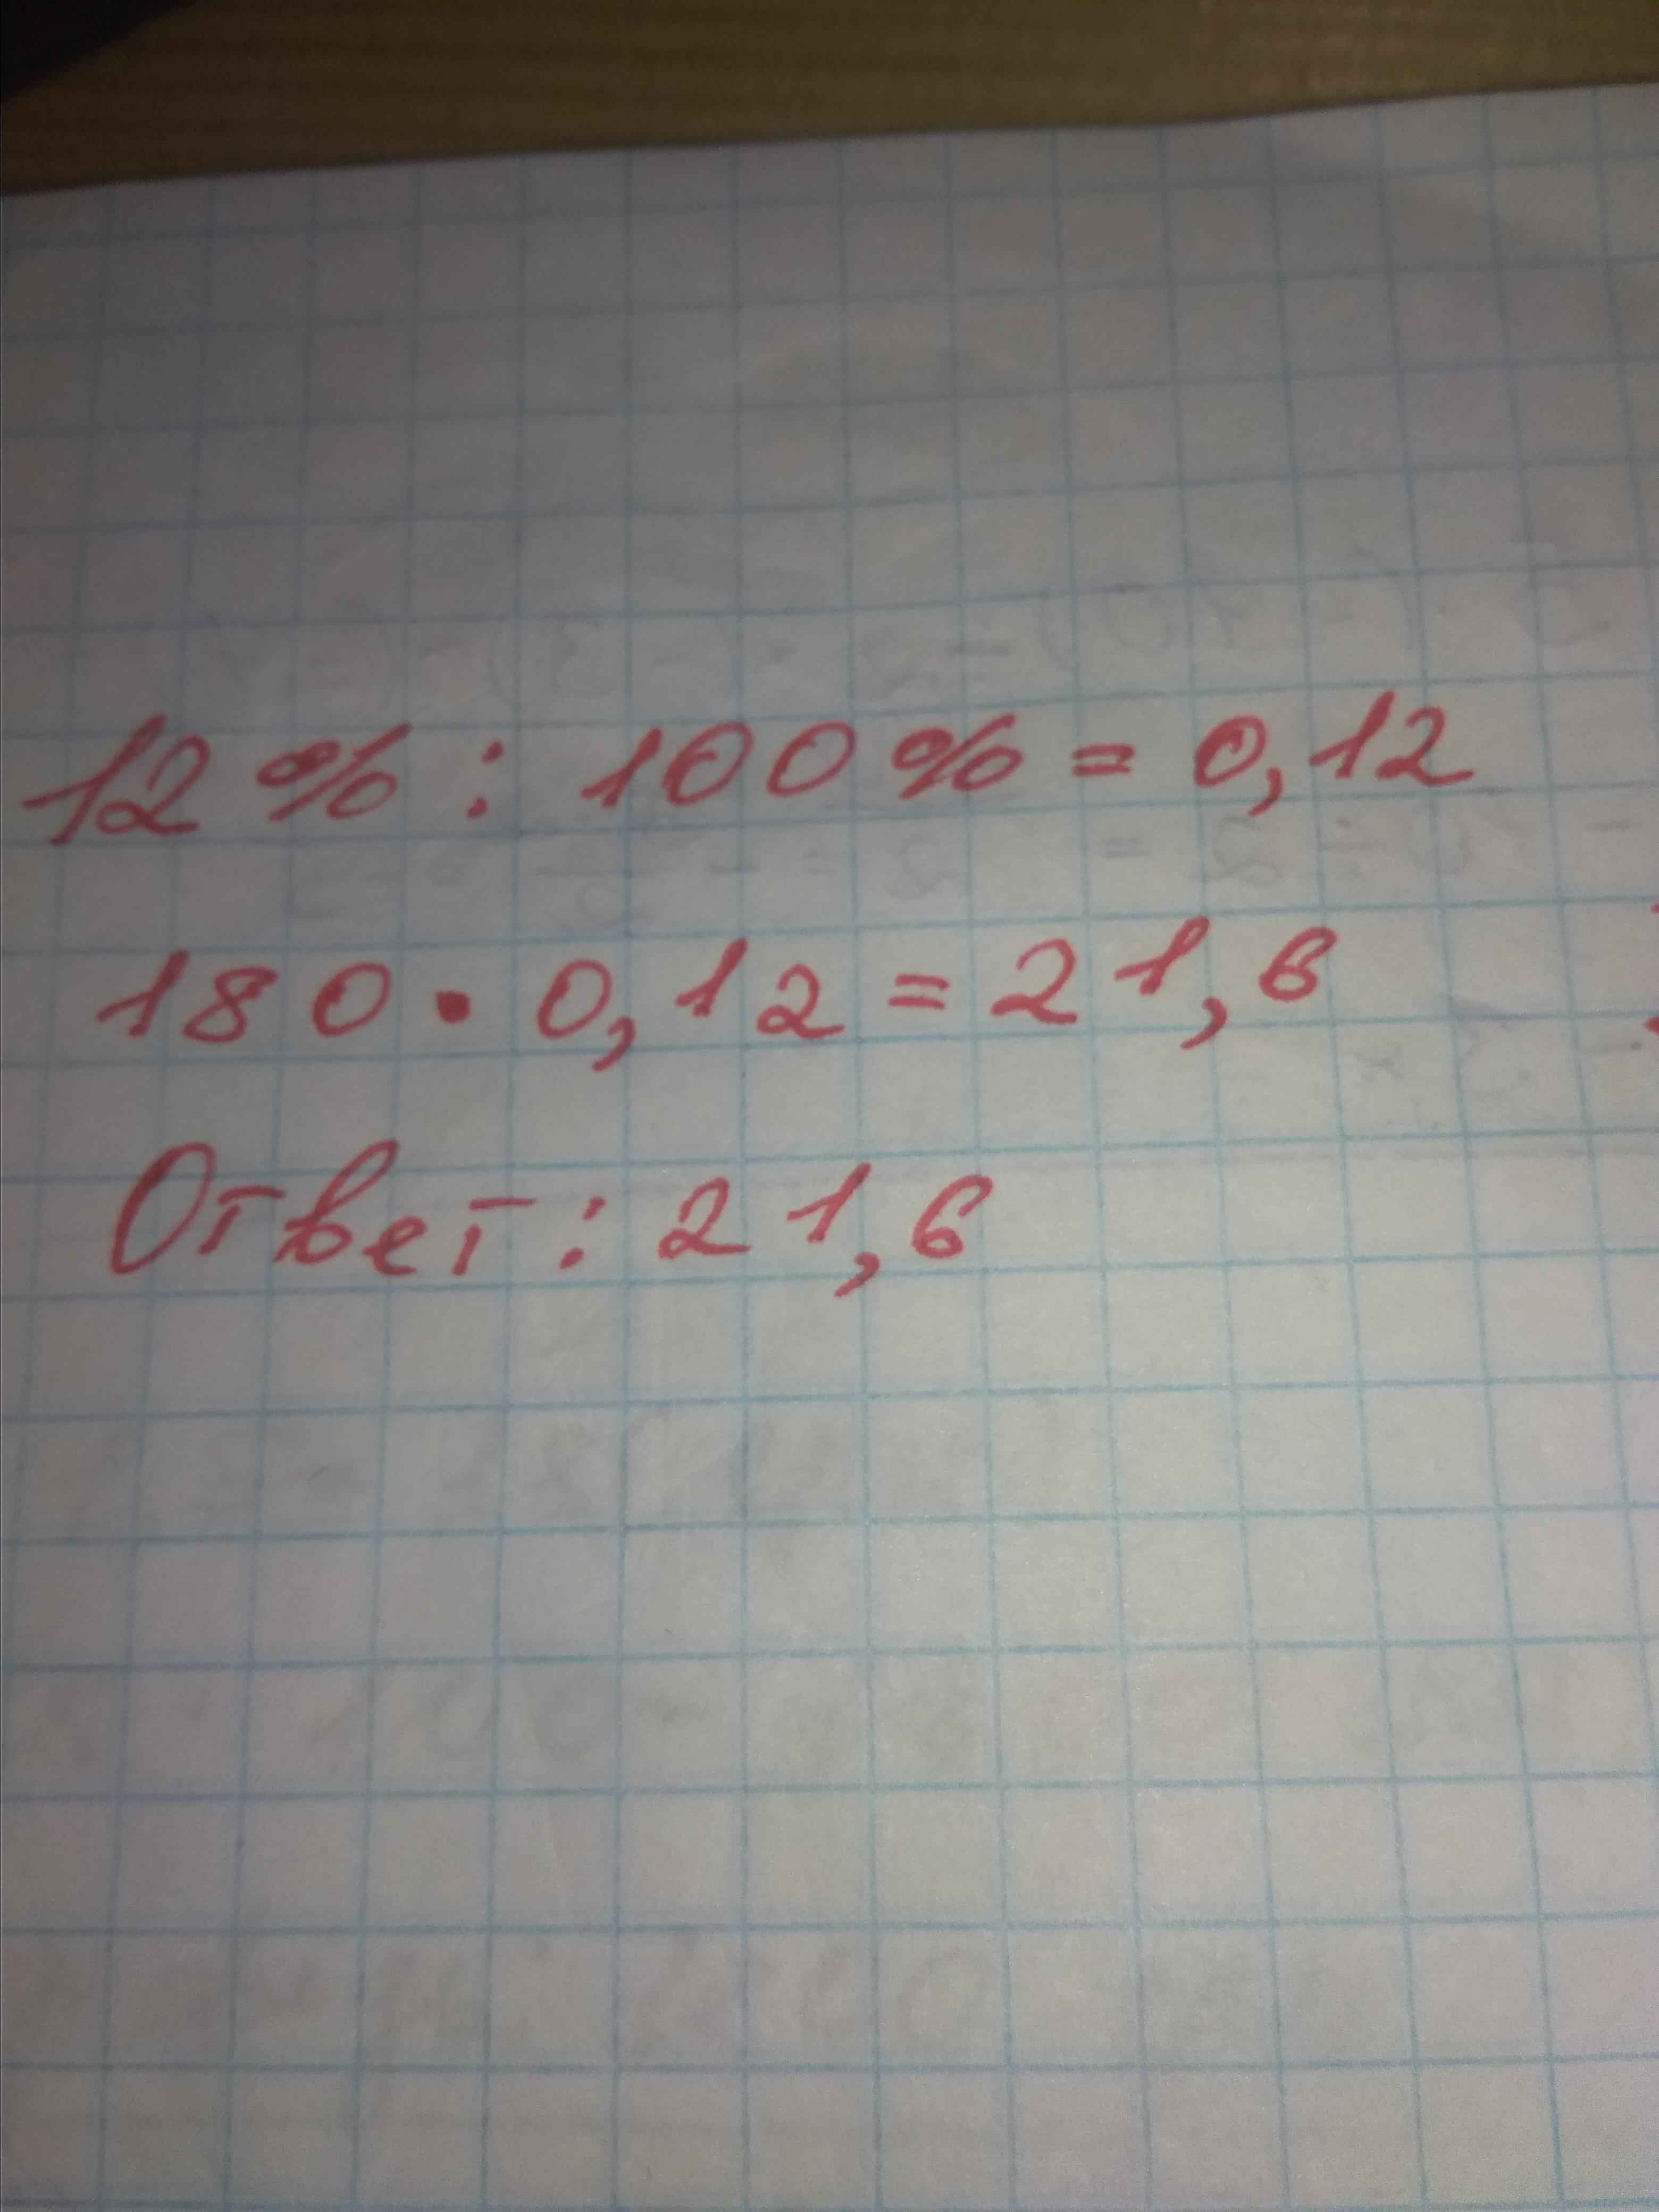 12% : 100% = 0,12
180 • 0,12 = 21,6
Ответ: 21,6